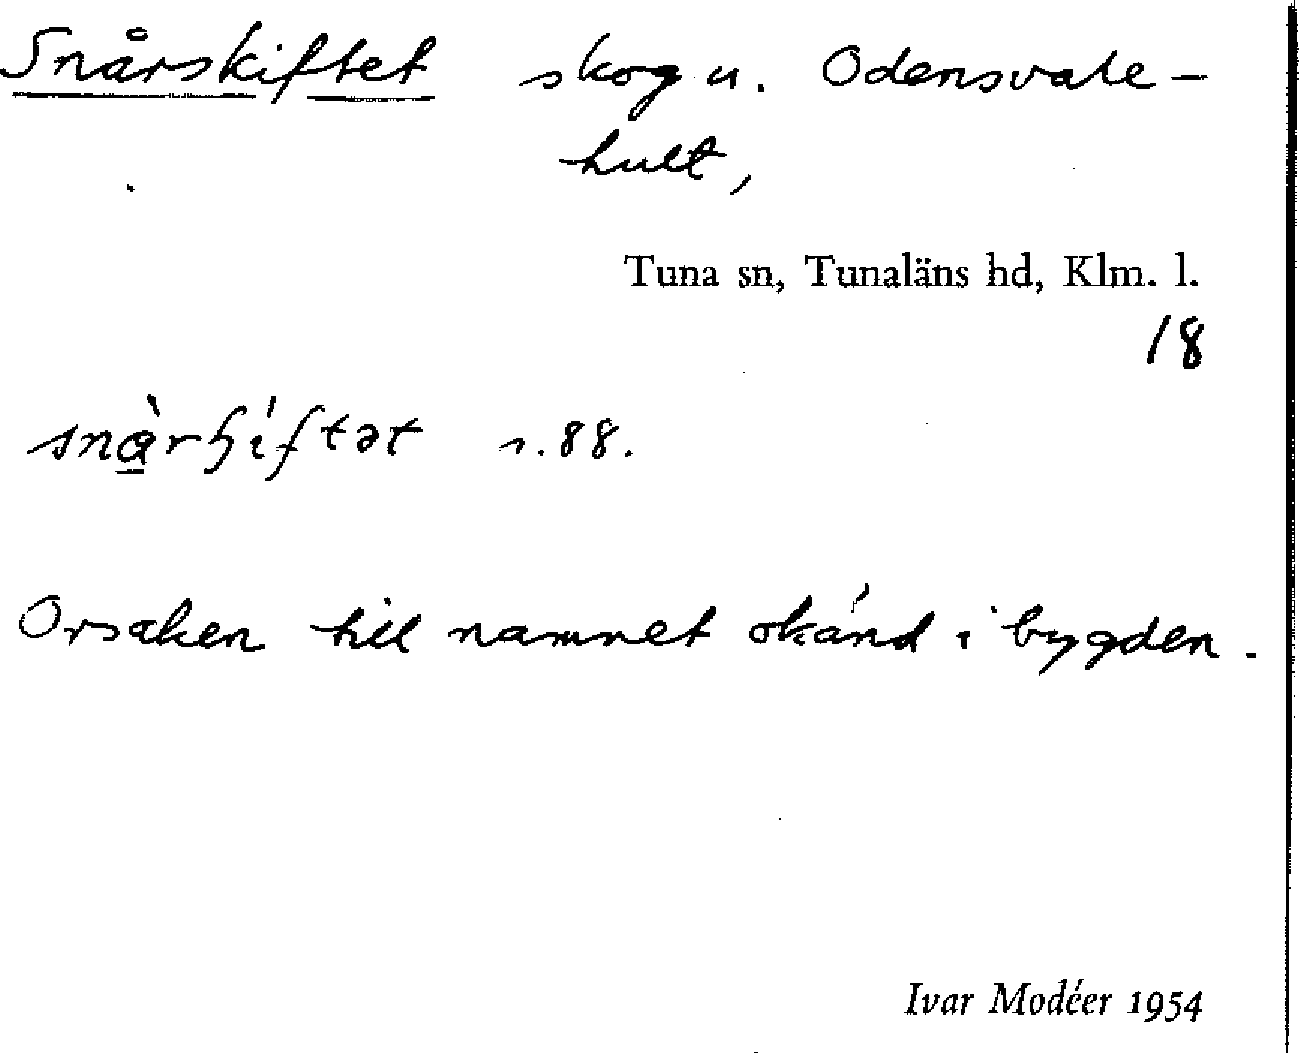 Snårskiftet skog u. Odensvale-
hult,
Tuna sn, Tunaläns hd, Klm. l.
18
s. 88.
Orsaken till namnet okänd i bygden.
Ivar Modéer 1954